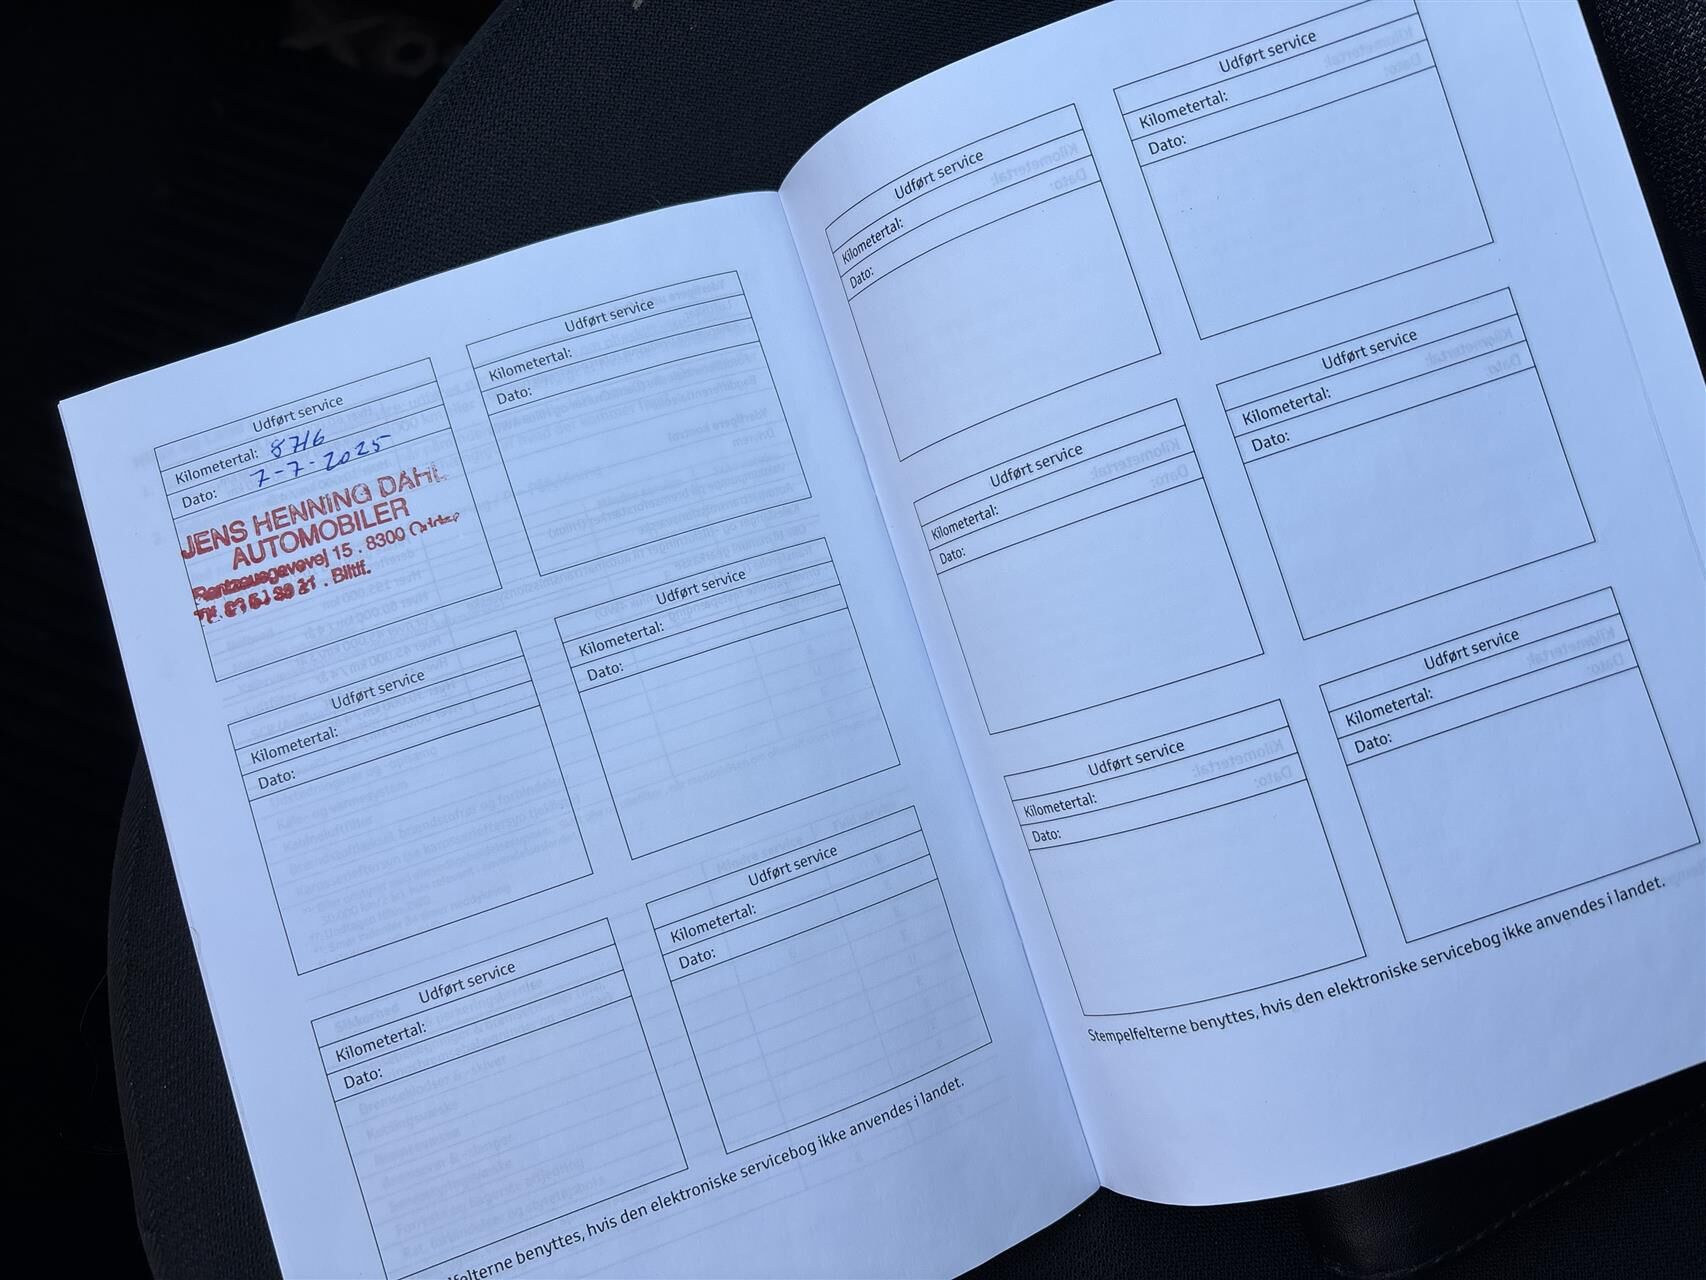 Udført service
Kilometertal: 8716
Dato: 7-7-2025
JENS HENNING DAHL
AUTOMOBILER
15 . 8300
Udført service
Kilometertal:
Dato:
Udført service
Kilometertal:
Dato:
Udført service
Kilometertal:
Dato:
Udført service
Kilometertal:
Dato:
Udført service
Kilometertal:
Dato:
benyttes, hvis den elektroniske servicebog ikke anvendes i landet.
Udført service
Kilometertal:
Dato:
Udført service
Kilometertal:
Dato:
Udført service
Kilometertal:
Dato:
Udført service
Kilometertal:
Dato:
Udført service
Kilometertal:
Dato:
Udført service
Kilometertal:
Dato:
Stempelfelterne benyttes, hvis den elektroniske servicebog ikke anvendes i landet.